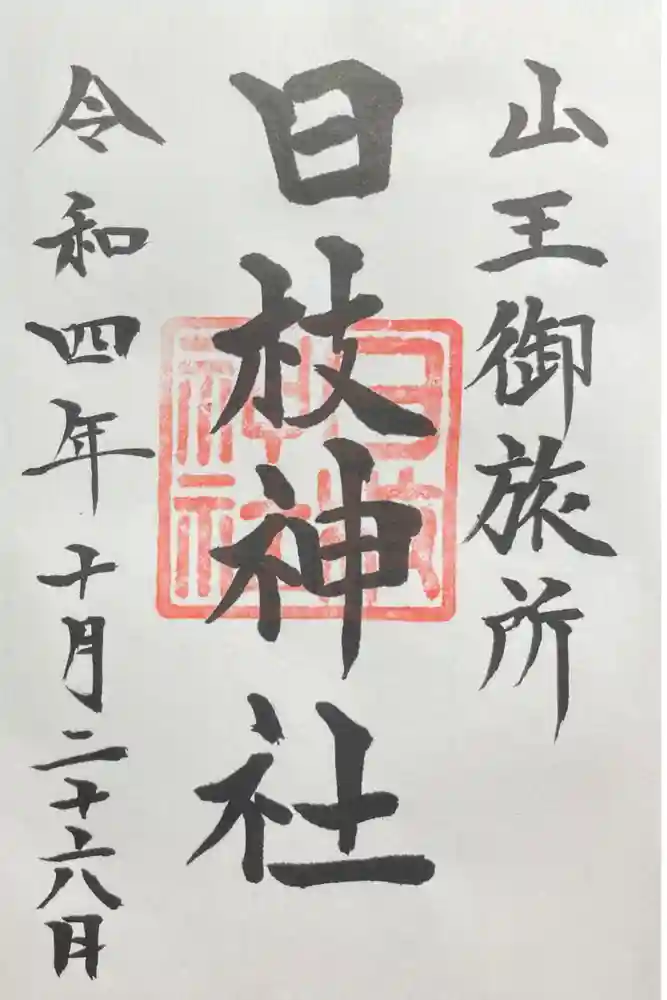 山王御旅所
日枝神社
令和四年十月二十六日
日枝
神社
神社